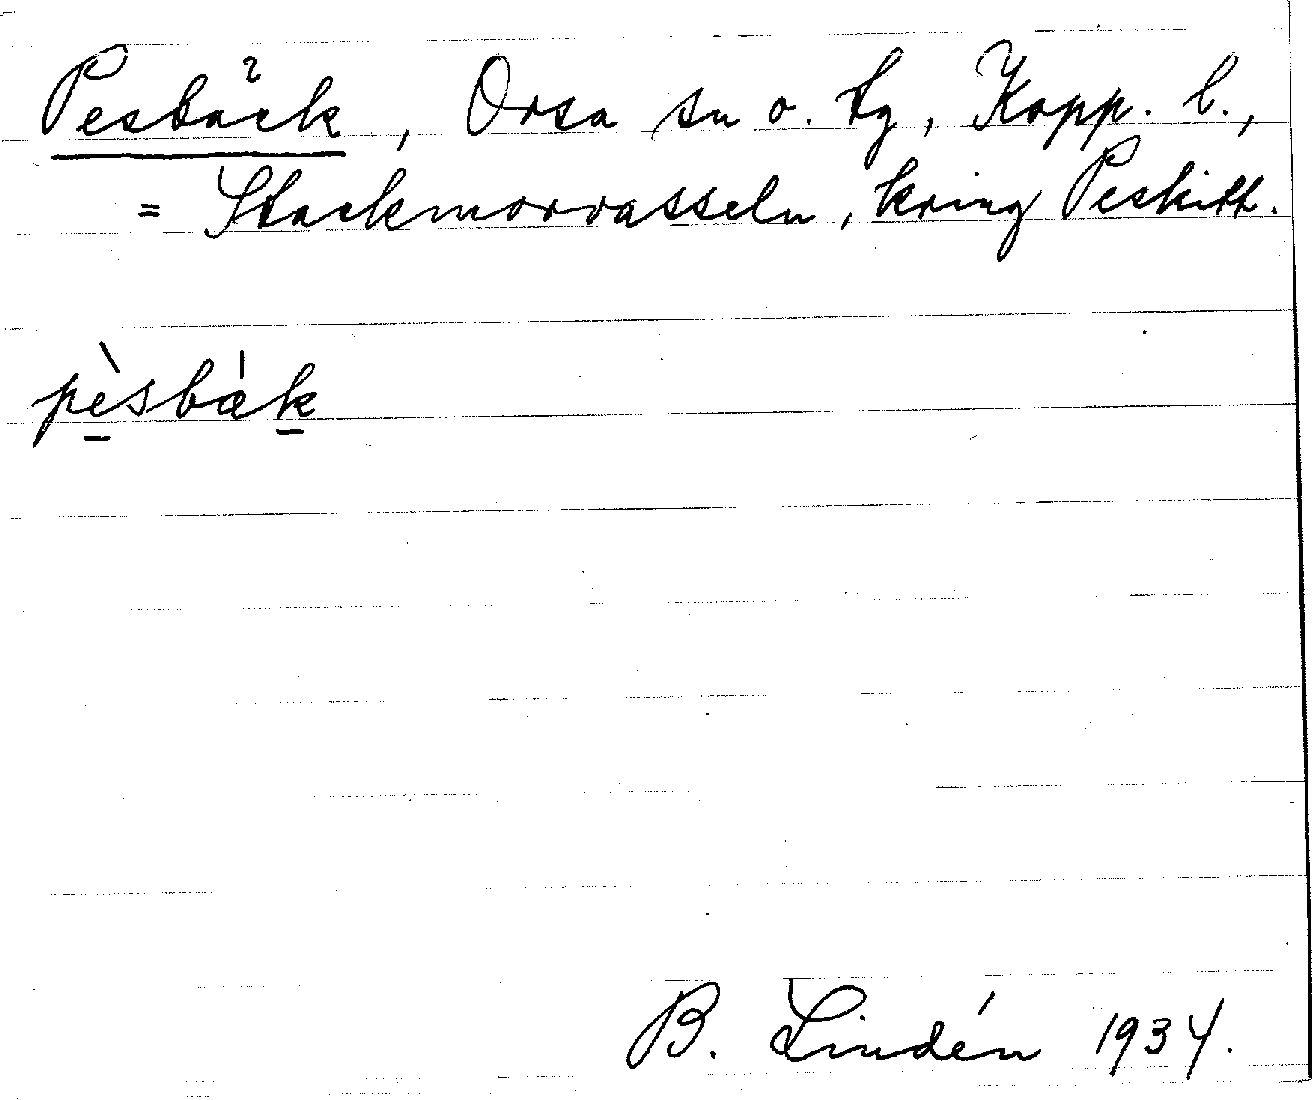 Pesbäck, Orsa sn o. tg, Kopp. l.,
= Stackmorvasseln, kring Peskitt.
pèsbàk
B. Lindén 1934.